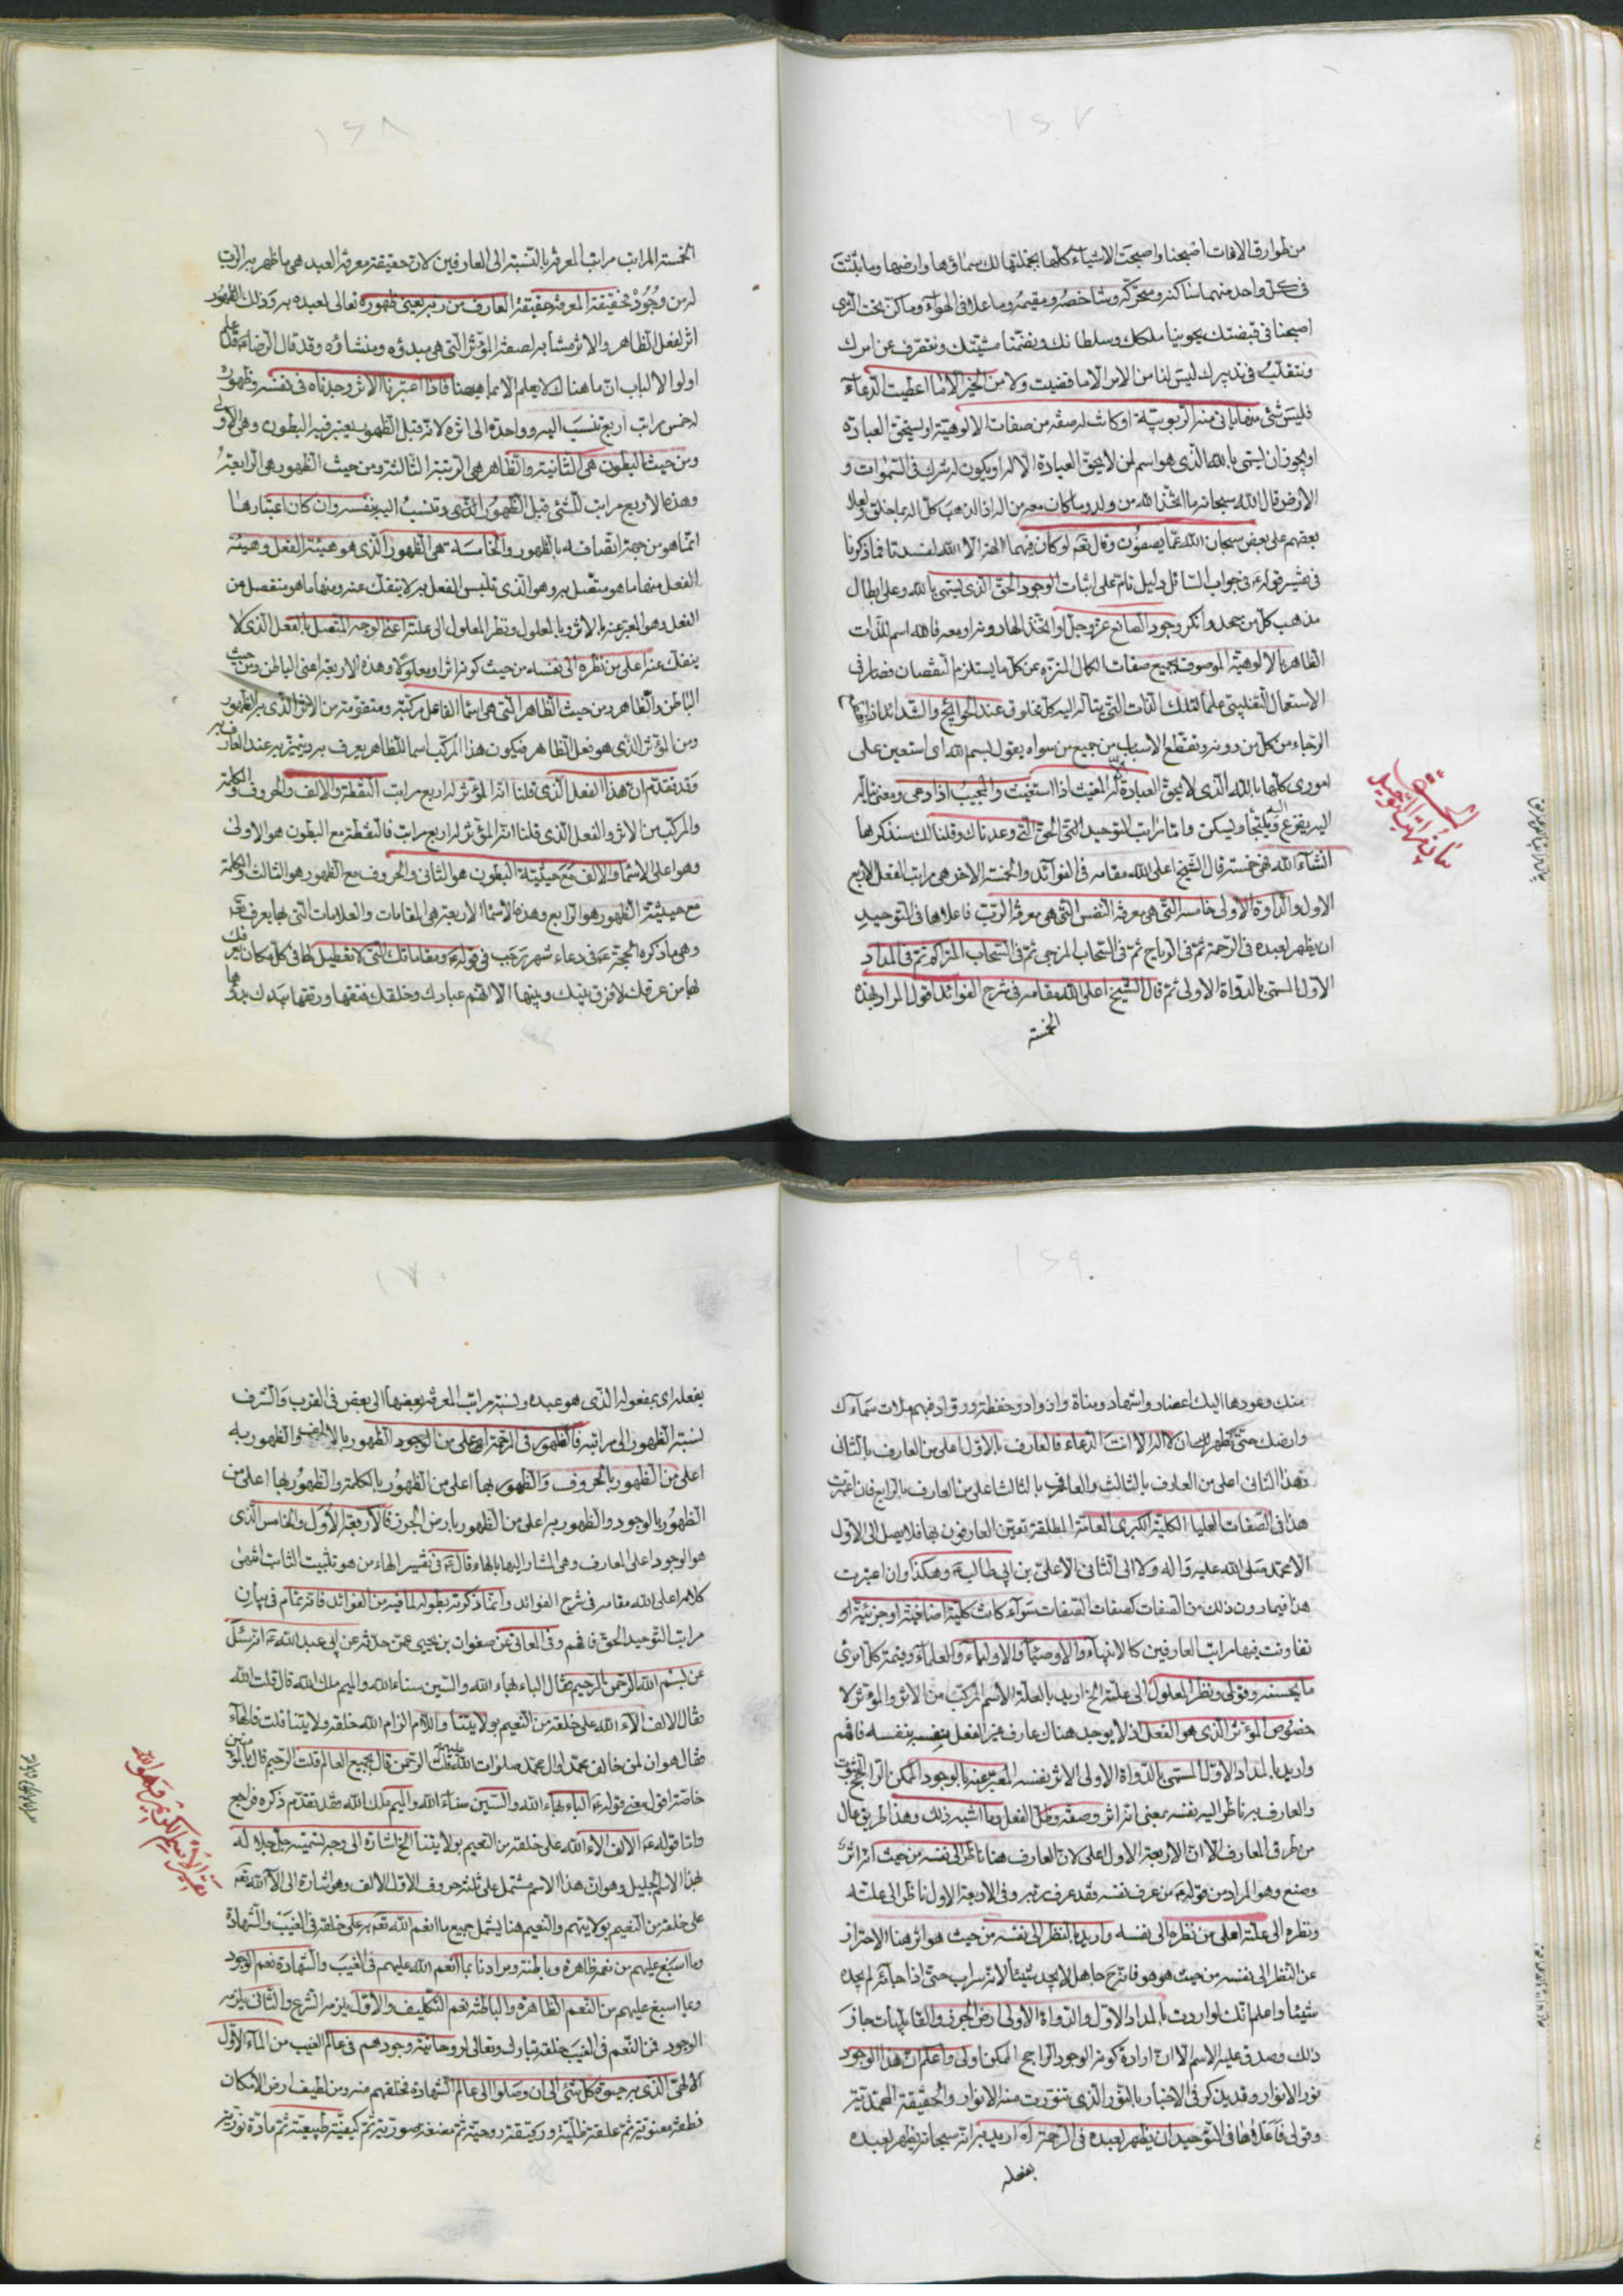 ١٦٧
من طوارق الافات اصبحنا واصبحت الاشياء كلها بجملتها لك سماؤها وارضها وما بثثت
فى كل واحد منهما ساكنه ومتحركه وشاخصه ومقيمه وما علا فى الهواء وما كن تحت الثرى
اصبحنا فى قبضتك يحوينا ملكك وسلطانك وتضمنا مشيتك ونتصرف عن امرك
ونتقلب فى تدبيرك ليس لنا من الامر الا ما قضيت ولا من الخير الا ما اعطيت الدعاء
فليس شئ منها بانى منه الربوبية او كانت له صفة من صفات الالوهية او يستحق العبادة
او يجوز ان يسمى بالله الذى هو اسم لمن لا يحق العبادة الا له او يكون له شرك فى السموات و
الارض قال الله سبحانه ما اتخذ الله من ولد وما كان معه من اله اذا لذهب كل اله بما خلق ولعلا
بعضهم على بعض سبحان الله عما يصفون وقال تعم لو كان فيهما الهة الا الله لفسدتا فما ذكرنا
فى تفسير قوله ع فى جواب السائل دليل تام على اثبات الوجود الحق الذى يسمى بالله وعلى ابطال
مذهب كل من جحد وانكر وجود الصانع عز وجل او اتخذ الها دونه او معه فالله اسم للذات
الظاهر بالالوهية الموصوفة بجميع صفات الكمال المنزه عن كل ما يستلزم النقصان فصار فى
الاستعمال التغليبى علما لتلك الذات التى يتأله اليه كل مخلوق عند الحوائج والشدائد اذا انقطع
الرجاء من كل من دونه وتقطع الاسباب من جميع من سواه يقول بسم الله اى استعين على
امورى كلها بالله الذى لا يحق العبادة الا له المغيث اذا استغيث والمجيب اذا دعى ومعنى يتأله
اليه يفزع ويلتجأ ويسكن واما مراتب التوحيد التى الحق التى وعدناك وقلنا لك سنذكرها
انشاء الله هى خمسة قال الشيخ اعلى الله مقامه فى الفوائد والخمسة الاخر هى مراتب الفعل الاربع
الاول والدواة الاولى خامسة التى هى معرفة النفس التى هى معرفة الرب فاعلاها فى التوحيد
ان يظهر لعبده فى الرحمة ثم فى الرياح ثم فى السحاب المزجى ثم فى السحاب المتراكم ثم فى المداد
الاول المسمى بالدواة الاولى ثم قال الشيخ اعلى الله مقامه فى شرح الفوائد اقول المراد بهذه
الخمسة
بيان مراتب التوحيد
١٦٨
الخمسة المراتب مراتب المعرفة بالنسبة الى العارفين لان حقيقة معرفة العبد هى ما ظهر به الرب
له من وجوده فحقيقة المعرفة حقيقة العارف من ربه يعنى ظهوره تعالى لعبده به وذلك الظهور
اثر لفعل الظاهر والاثر مشابه لصفة المؤثر التى هى مبدؤه ومنشاؤه وقد قال الرضا ع قد علم
اولوا الالباب ان ما هنالك لا يعلم الا بما هيهنا فاذا اعتبرنا الاثر وجدناه فى نفسه وظهوره
له خمس مراتب اربع تنسب اليه وواحدة الى اثره لانه قبل الظهور يعتبر فيه البطون وهى الاولى
ومن حيث البطون هى الثانية والظاهر هى الرتبة الثالثة ومن حيث الظهور هى الرابعة
وهذه الاربع مراتب للشئ قبل الظهور الذى وتنسب اليه بنفسه وان كان اعتبارها
انما هو من جهة اتصافه بالظهور والخامسة هى الظهور الذى هو هيئة الفعل وهيئة
الفعل منها ما هو متصل به وهو الذى تلبس الفعل به لا ينفك عنه ومنها ما هو منفصل من
الفعل وهو المعبر عنه بالاثر وبالمعلول ونظر المعلول الى علته اعنى الوجه المتصل بالفعل الذى لا
ينفك عنه اعلى من نظره الى نفسه من حيث كونه اثرا ومعلولا وهذه الاربعة اعنى الباطن ومن حيث
الباطن والظاهر ومن حيث الظاهر التى هى اسماء الفاعل مركبة ومتقومة من الاثر الذى به الظهور
ومن المؤثر الذى هو فعل الظاهر فيكون هذا المركب اسما للظاهر يعرف به ويتميز به عند العارف به
وقد تقدم ان هذا الفعل الذى قلنا انه المؤثر له اربع مراتب النقطة والالف والحروف والكلمة
والمركب من الاثر والفعل الذى قلنا انه المؤثر له اربع مراتب فالنقطة مع البطون هو الاولى
وهو اعلى الاسماء والالف مع حيثية البطون هو الثانى والحروف مع الظهور هو الثالث والكلمة
مع حيثية الظهور هو الرابع وهذه الاسماء الاربعة هى المقامات والعلامات التى بها يعرف تعم
وهى ما ذكره الحجة ع فى دعاء شهر رجب فى قوله ع ومقاماتك التى لا تعطيل لها فى كل مكان يعرفك
بها من عرفك لا فرق بينك وبينها الا انهم عبادك وخلقك فتقها ورتقها بيدك بدؤها
١٦٩
منك وعودها اليك اعضاد واشهاد ومناة واذواد وحفظة ورواد فبهم ملات سماءك
وارضك حتى ظهر ان لا اله الا انت الدعاء فالعارف بالاول اعلى من العارف بالثانى
وهذا الثانى اعلى من العارف بالثالث والعارف بالثالث اعلى من العارف بالرابع فان اعتبرت
هذا فى الصفات العليا الكلية الكبرى العامة المطلقة تعين العارفون بها فلا يصل الى الاول
الا محمد صلى الله عليه واله ولا الى الثانى الا على بن ابى طالب ع وهكذا وان اعتبرت
هذا فيما دون ذلك من الصفات كصفات الصفات سواء كانت كلية اضافية او جزئية او
تفاوتت فيها مراتب العارفين كالانبياء والاوصياء والاولياء والعلماء وقيمة كل امرئ
ما يحسنه وقولى ونظر المعلول الى علته الخ اريد بالعلة الاسم المركب من الاثر والمؤثر لا
خصوص المؤثر الذى هو الفعل اذ لا يوجد هناك عارف غير الفعل بنفسه بنفسه فافهم
واريد بالمداد الاول المسمى بالدواة الاولى الاثر بنفسه المعبر عنه بالوجود الممكن الراجح الثبوت
والعارف به ناظر اليه نفسه بمعنى انه اثر وصفة وظل الفعل وما اشبه ذلك وهذا طريق عال
من طرق المعارف الا ان الاربعة الاول اعلى لان العارف هنا ناظر الى نفسه من حيث انه اثر
وصنع وهو المراد من قوله ع من عرف نفسه فقد عرف ربه وفى الاربعة الاول ناظر الى علته
ونظره الى علته اعلى من نظره الى نفسه واريد بالنظر الى نفسه من حيث هو اثر هنا الاحتراز
عن النظر الى نفسه من حيث هو هو فانه ح جاهل لا يجد شيئا لانه سراب حتى اذا جائه لم يجده
شيئا واعلم انك لو اردت بالمداد الاول والدواة الاولى ارض الجرز والقابليات جاز
ذلك وصدق عليه الاسم الا ان ارادة كونه الوجود الراجح الممكن اولى واعلم ان هذا الوجود
نور الانوار وقد يذكر فى الاخبار بالنور الذى تنورت منه الانوار والحقيقة المحمدية
وقولى فاعلاها فى التوحيد ان يظهر لعبده فى الرحمة اه اريد به انه سبحانه يظهر لعبده
بفعله
١٧٠
بفعله اى بمفعوله الذى هو عبده ونسبة مراتب المعرفة بعضها الى بعض فى القرب والشرف
لنسبة الظهور الى مراتبه فالظهور فى الرحمة اعلى من الوجود الظهور بالالف والظهور به
اعلى من الظهور بالحروف والظهور بها اعلى من الظهور بالكلمة والظهور بها اعلى من
الظهور بالوجود والظهور به اعلى من الظهور بارض الجرز فالاربعة الاول والخامس الذى
هو الوجود اعلى المعارف وهى المشار اليها بالهاء قال ع فى تفسير الهاء من هو تثبيت الثابت انتهى
كلامه اعلى الله مقامه فى شرح الفوائد وانما ذكرته بطوله لما فيه من الفوائد فانه تمام فى بيان
مراتب التوحيد الحق فافهم وفى المعانى عن صفوان بن يحيى عمن حدثه عن ابى عبدالله ع انه سئل
عن بسم الله الرحمن الرحيم فقال الباء بهاء الله والسين سناء الله والميم ملك الله قال قلت الله
فقال الالف الاء الله على خلقه من النعيم بولايتنا واللام الزام الله خلقه ولايتنا قلت فالهاء
فقال هوان لمن خالف محمد وال محمد صلوات الله عليهم قلت الرحمن قال بجميع العالم قلت الرحيم قال بالمؤمنين
خاصة اقول معنى قوله ع الباء بهاء الله والسين سناء الله والميم ملك الله فقد تقدم ذكره فراجع
واما قوله ع الالف الاء الله على خلقه من النعيم بولايتنا الخ اشارة الى وجه تسميته جل جلاله
بهذا الاسم الجليل وهو ان هذا الاسم مشتمل على ثلثة حروف الاول الالف وهو اشارة الى الاء الله تعم
على خلقه من النعيم بولايتهم والنعيم هنا يشمل جميع ما انعم الله تعم به على خلقه فى الغيب والشهادة
وما اسبغ عليهم من نعمه ظاهرة وباطنة ومرادنا بما انعم الله عليهم فى الغيب والشهادة نعم الوجود
وبما اسبغ عليهم من النعم الظاهرة والباطنة نعم التكليف والاول يلزمه الشرع والثانى يلزمه
الوجود فمن النعم فى الغيب خلقه تبارك وتعالى لروحانية وجودهم فى عالم الغيب من الماء الاول
الالهى الذى به حيوة كل شئ الى ان وصلوا الى عالم الشهادة فخلقهم منه ومن لطيف ارض الامكان
نطفة معنوية ثم علقة ظلية وركيقة روحية ثم مضغة صورية ثم كيفية طبيعية ثم مادة نورية
تفسير الاسم الكريم وهو الله